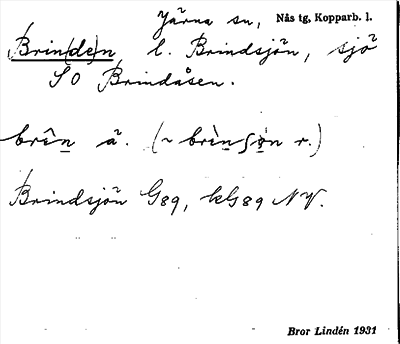 Järna sn, Nås tg, Kopparb. l.
Brin(de)n l. Brindsjön, sjö
SO Brindåsen.
brîn ä. (~ brìnʃøn r.)
Brindsjön G89, kG89 NV.
Bror Lindén 1931